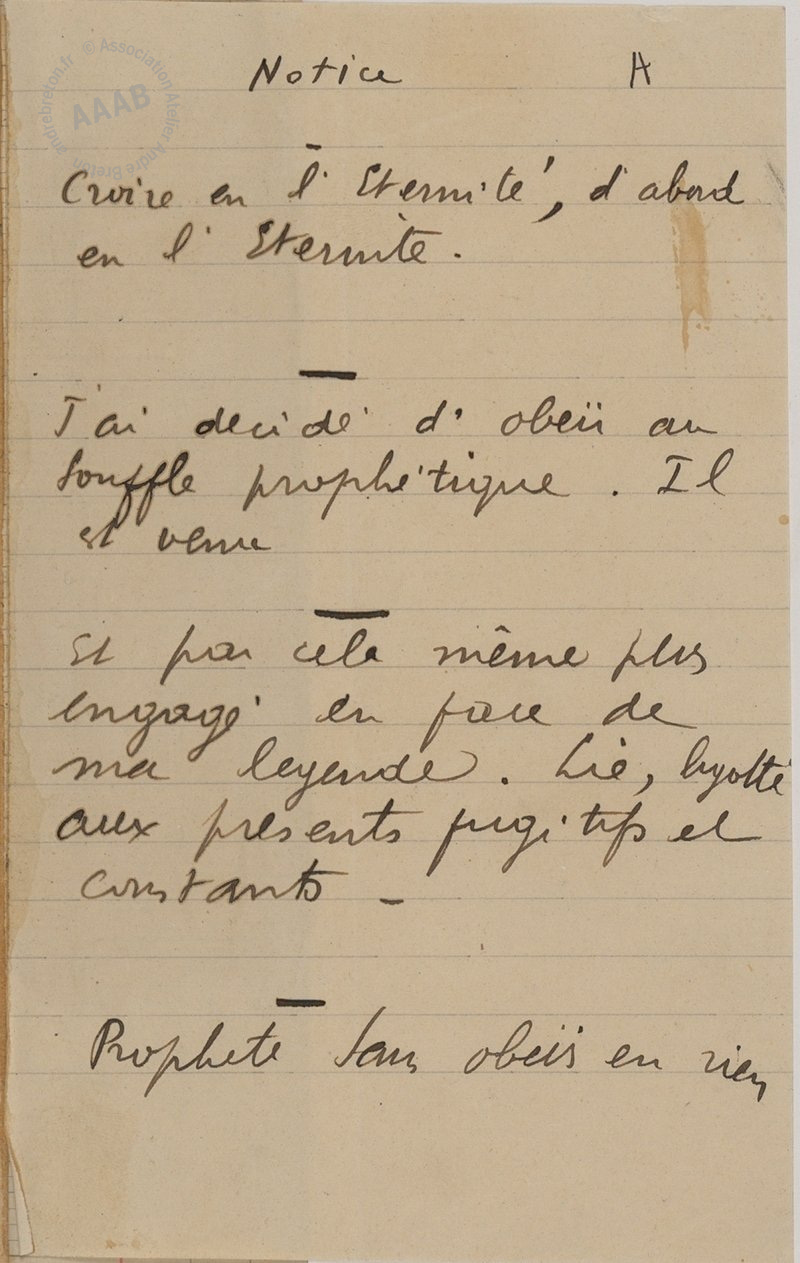 © Association Atelier André Breton
andrebreton.fr
AAAB
Notice A
Croire en l'Eternité, d'abord
en l'Eternité.
J'ai decidé d'obeir au
souffle prophétique. Il
est venu
Et par cela même plus
engagé en face de
ma legende. Lié,
aux presents fugitifs et
constants -
Prophete sans obeir en rien